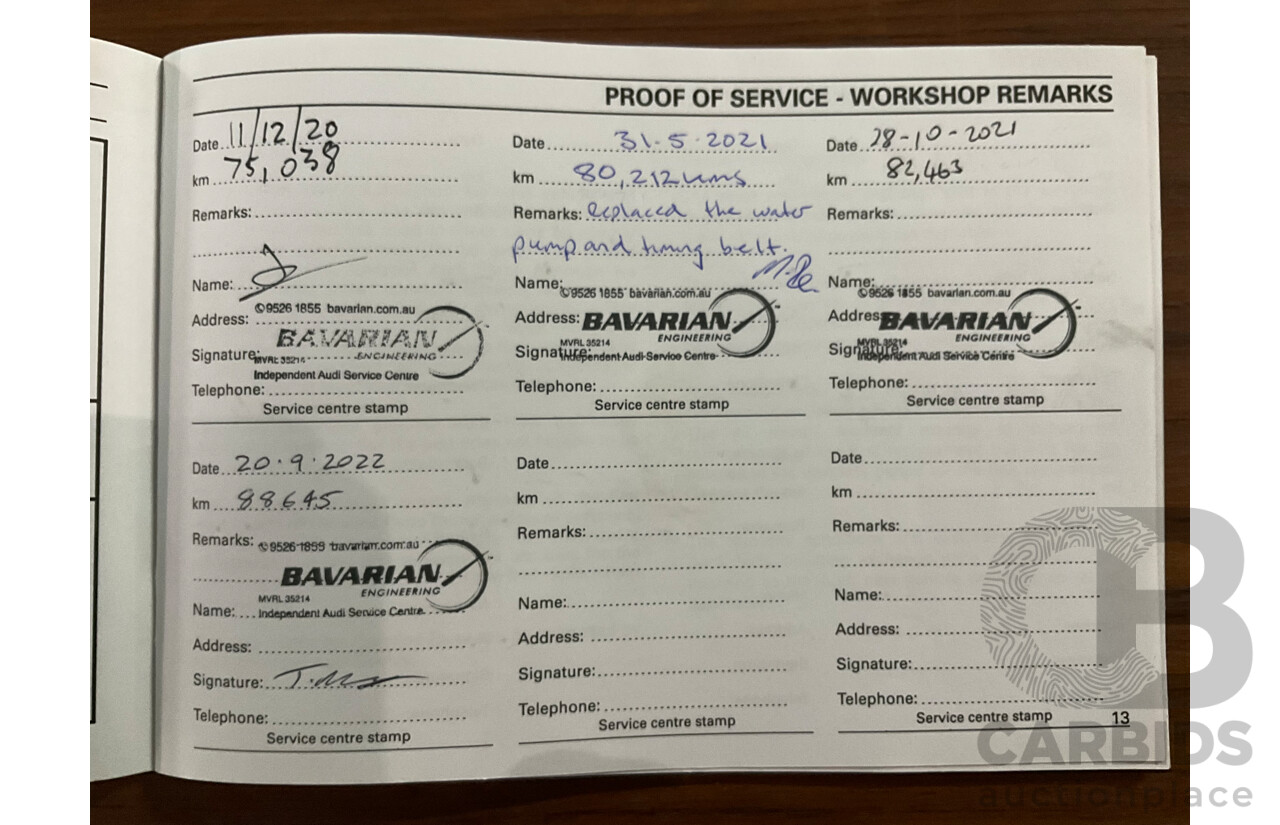 PROOF OF SERVICE - WORKSHOP REMARKS
Date 11/12/20
km 75,038
Remarks:
Name:
©9526 1855 bavarian.com.au
Address:
BAVARIAN
ENGINEERING
Signature:
MVRL 35214
Independent Audi Service Centre
Telephone:
Service centre stamp
Date 31-5-2021
km 80,212kms
Remarks: Replaced the water
pump and timing belt.
Name:
©9526 1855 bavarian.com.au
Address:
BAVARIAN
ENGINEERING
MVRL 35214
Signature:
Independent Audi Service Centre
Telephone:
Service centre stamp
Date 28-10-2021
km 82,463
Remarks:
Name:
©9526 1855 bavarian.com.au
Address:
BAVARIAN
ENGINEERING
MVRL 35214
Signature:
Independent Audi Service Centre
Telephone:
Service centre stamp
Date 20.9.2022
km 88645
Remarks:
©9526 1855 bavarian.com.au
BAVARIAN
ENGINEERING
MVRL 35214
Name:
Independent Audi Service Centre
Address:
Signature:
Telephone:
Service centre stamp
Date
km
Remarks:
Name:
Address:
Signature:
Telephone:
Service centre stamp
Date
km
Remarks:
Name:
Address:
Signature:
Telephone:
Service centre stamp
13
CB
CARBIDS
auctionplace